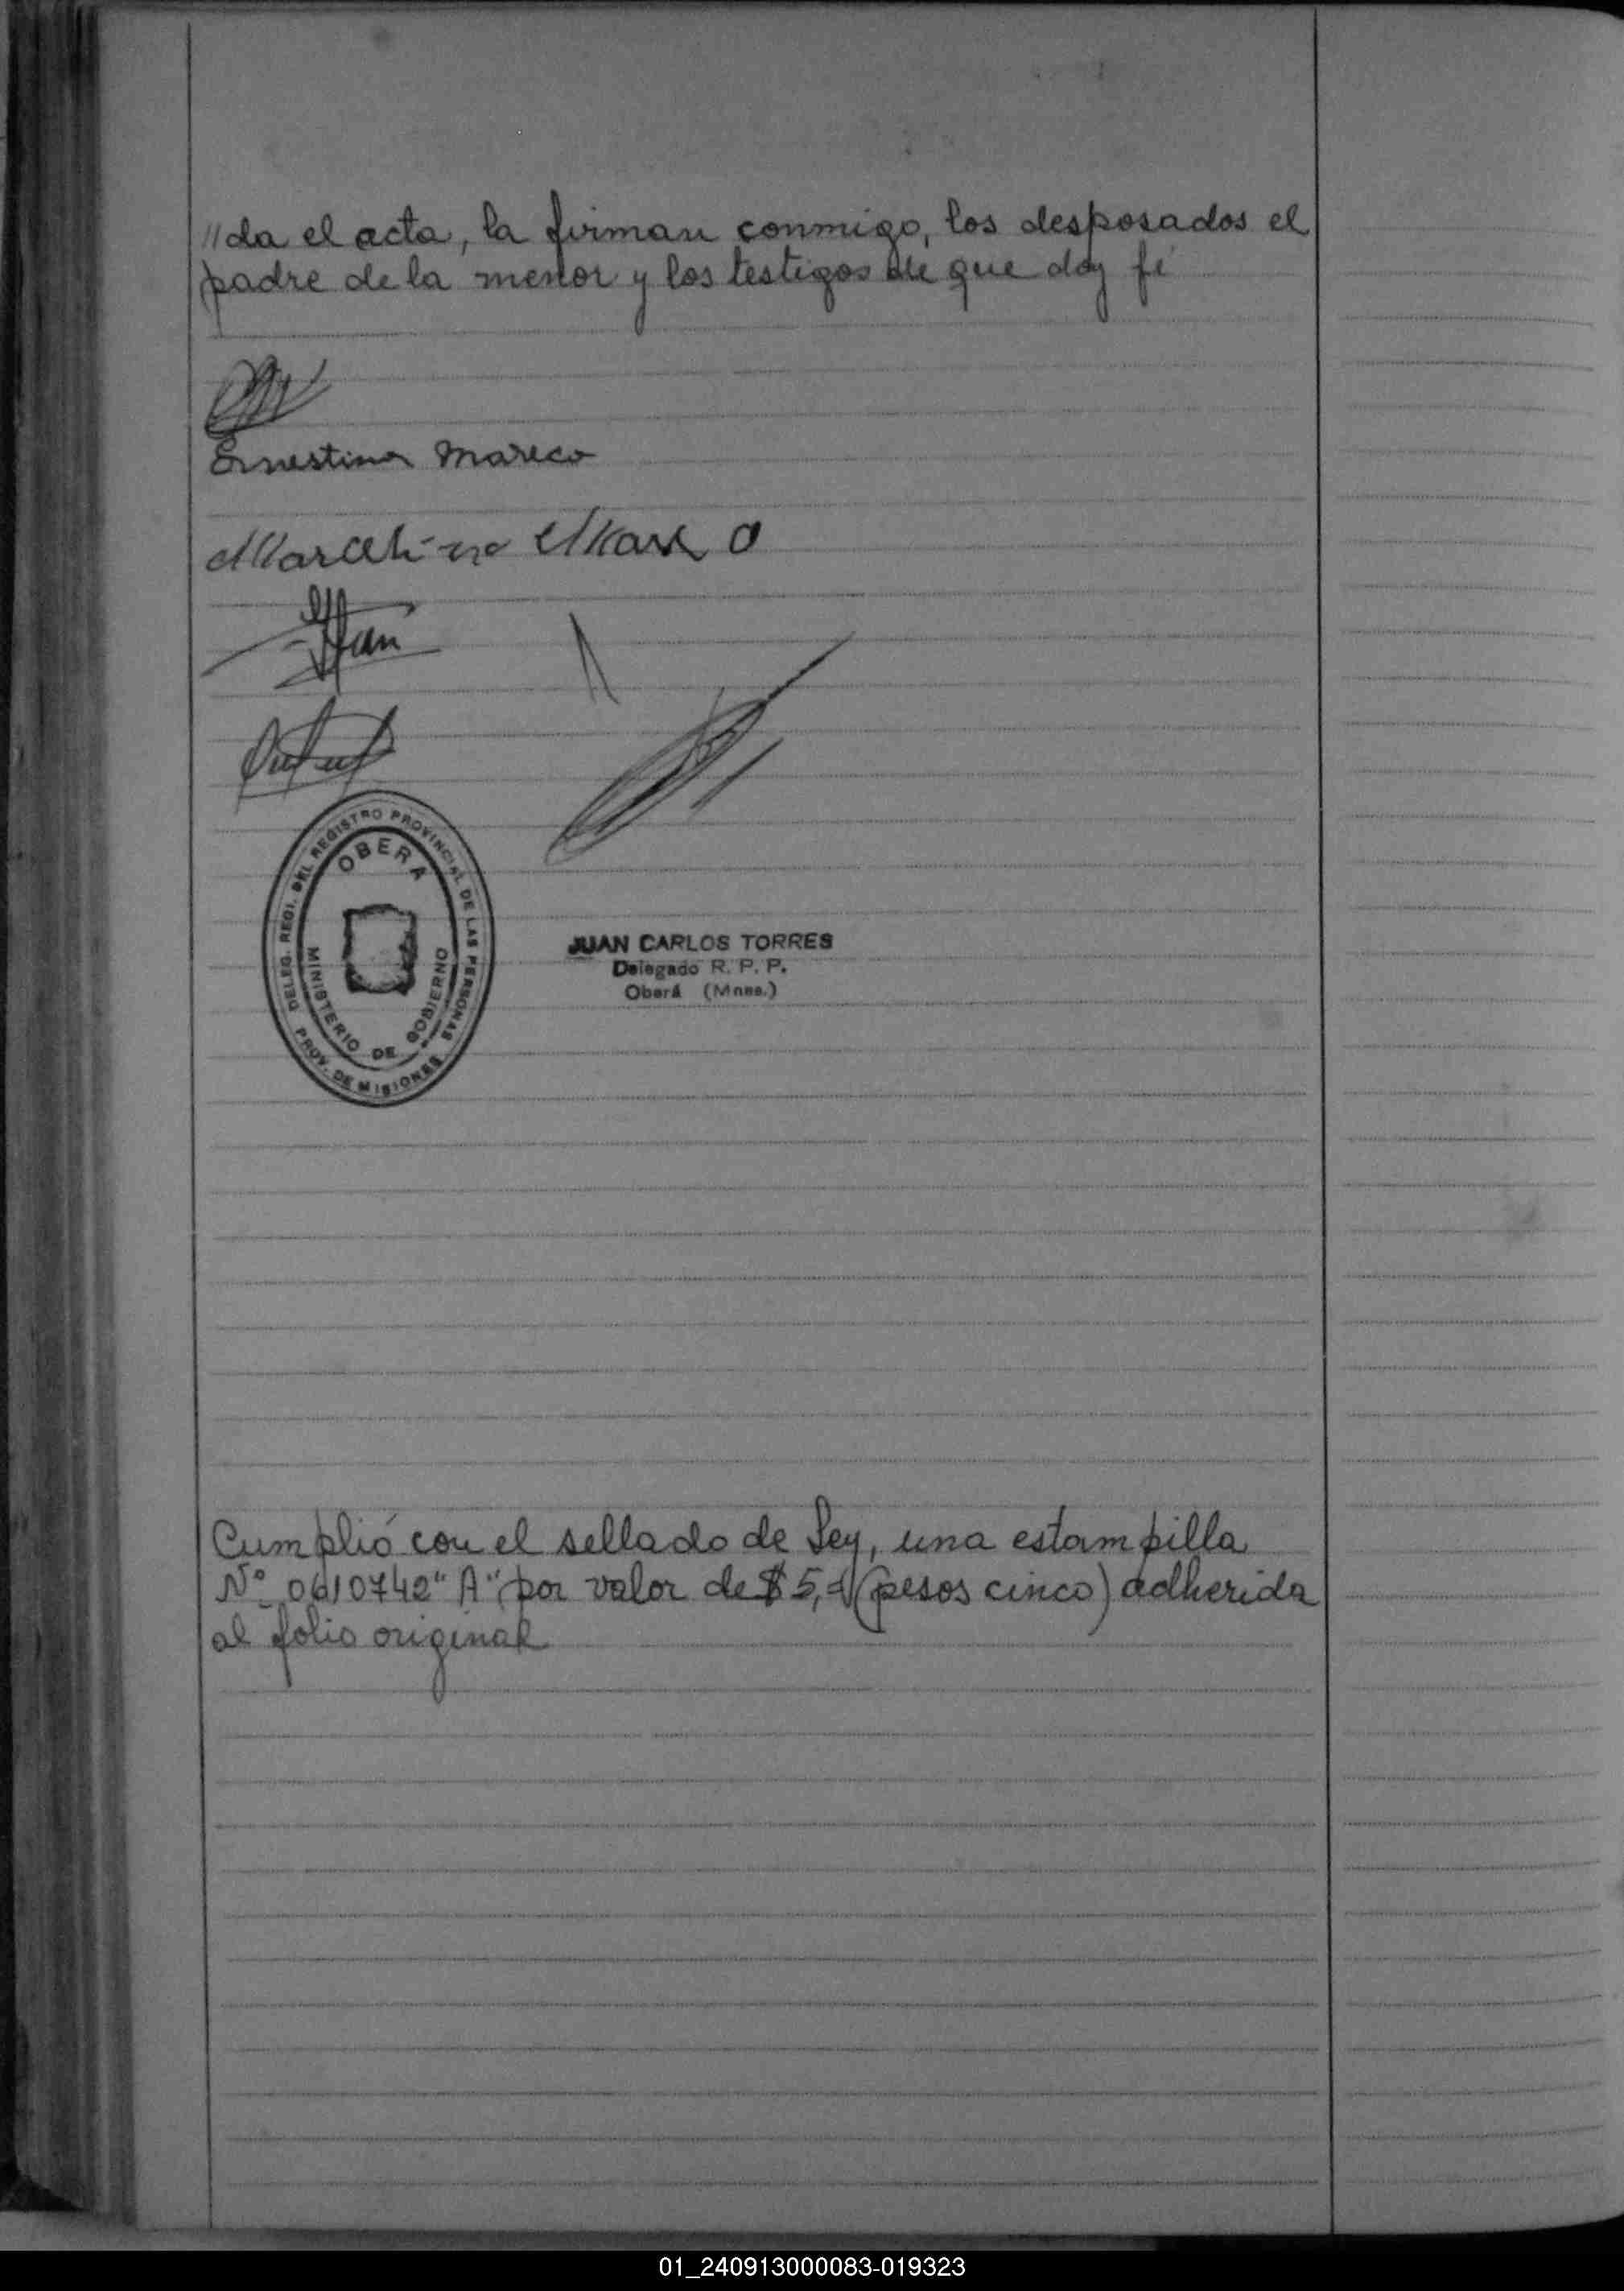 //da el acta, la firman conmigo, los desposados el
padre de la menor y los testigos de que doy fé
Ernestina Mareco
Marcelino
DELEG. REGI. DEL REGISTRO PROVINCIAL DE LAS PERSONAS
OBERA
MINISTERIO DE GOBIERNO
PROV. DE MISIONES
JUAN CARLOS TORRES
Delegado R. P. P.
Oberá (Mnes.)
Cumplió con el sellado de Ley, una estampilla
Nº 0610742 "A" por valor de $ 5,- (pesos cinco) adherida
al folio original
01_240913000083-019323